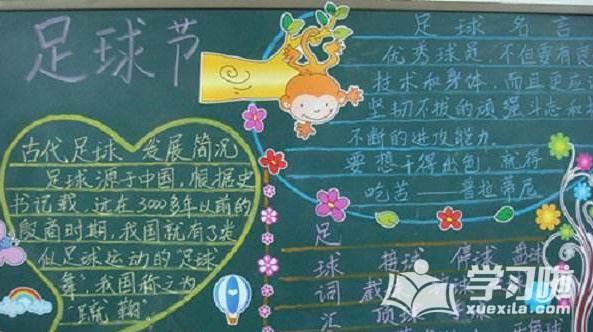 足球节
古代足球 发展简况
足球源于中国，根据史
书记载，远在3000多年以前的
殷商时期，我国就有了类
似足球运动的"足球
舞，我国称之为
"蹴鞠"
足球名言
优秀球员，不但要有良
技术和身体，而且更应
坚韧不拔的顽强斗志和
不断的进攻能力。
要想干得出色，就得
吃苦——普拉蒂尼
足
球 停球 盘球
词 截
汇 顶球
学习啦
xuexila.com